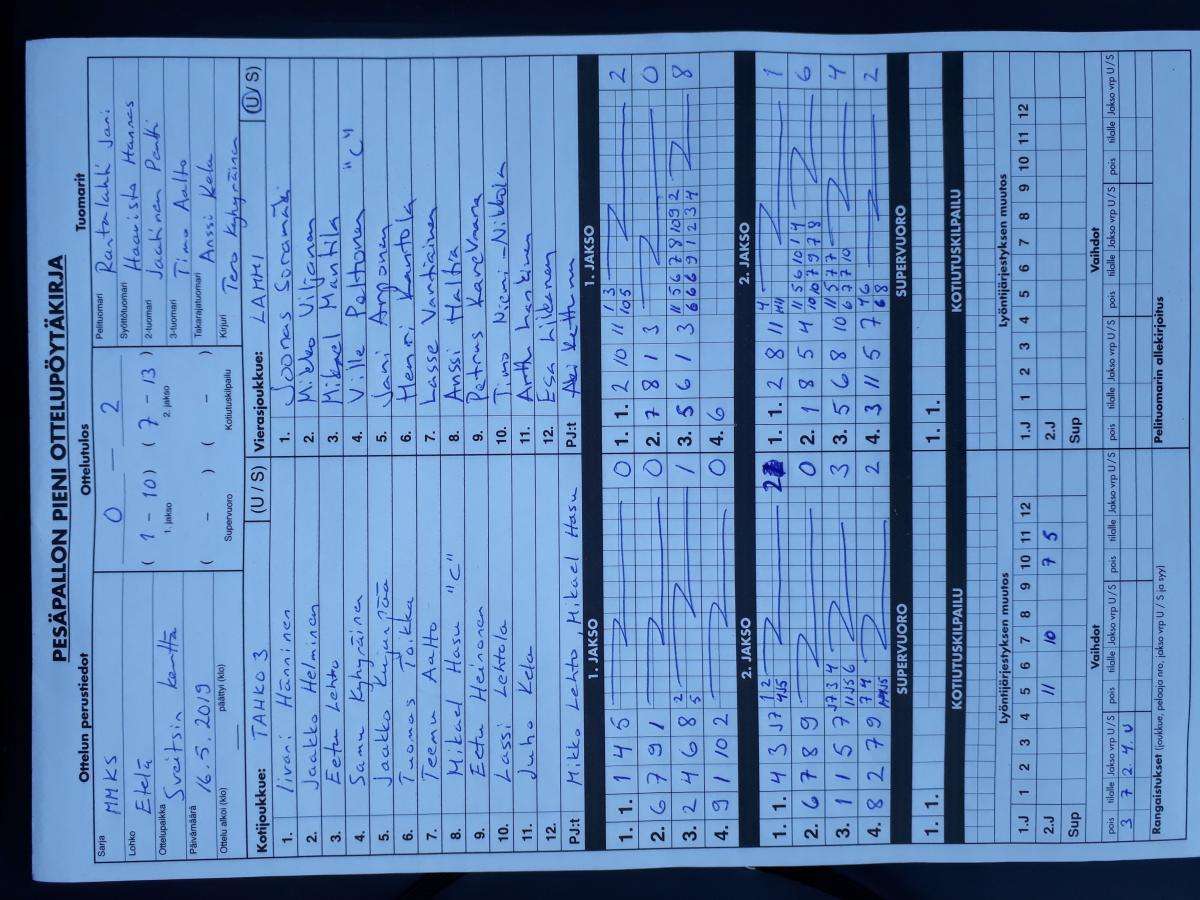 PESÄPALLON PIENI OTTELUPÖYTÄKIRJA
Ottelun perustiedot
Sarja MMKS
Lohko Etelä
Ottelupaikka Sveitsin kenttä
Päivämäärä 16.5.2019
Ottelu alkoi (klo) päättyi (klo)
Ottelutulos
0 — 2
( 1 - 10 ) ( 7 - 13 )
1. jakso 2. jakso
( - ) ( - )
Supervuoro Kotiutuskilpailu
Tuomarit
Pelituomari Rantalahti Jani
Syöttötuomari Haavisto Hannas
2-tuomari Jaatinen Pentti
3-tuomari Timo Aalto
Takarajatuomari Anssi Kela
Kirjuri Tero Kyhyräinen
Kotijoukkue: TAHKO 3 (U / S)
1. Iivari Hänninen
2. Jaakko Helminen
3. Eetu Lehto
4. Samu Kyhyräinen
5. Jaakko Kujanpää
6. Tuomas Toikka
7. Teemu Aalto
8. Mikael Hasu "C"
9. Eetu Heinonen
10. Lassi Lehtola
11. Juho Kela
12.
PJ:t Mikko Lehto, Mikael Hasu
Vierasjoukkue: LAMMI (U / S)
1. Joonas Soramäki
2. Mikko Viljanen
3. Mikael Mantila
4. Ville Peltonen "C"
5. Jani Arponen
6. Henri Rantola
7. Lasse Vantiainen
8. Anssi Haltia
9. Petrus Kanervaara
10. Timo Niemi-Nikkola
11. Arttu Lankinen
12. Esa Liikanen
PJ:t
1. JAKSO
1. 1. 1 4 5 0
2. 6 7 9 1 0
3. 2 4 6 8 2 5 1
4. 9 1 10 2 0
1. JAKSO
1. 1. 2 10 11 1 3 10 5 2
2. 7 8 1 3 0
3. 5 6 1 3 11 5 6 7 8 10 9 2 6 6 6 9 1 2 3 4 8
4. 6
2. JAKSO
1. 1. 4 3 J7 1 2 4 J5 2
2. 6 7 8 9 0
3. 1 1 5 7 J7 3 4 11 J5 6 3
4. 8 2 7 9 7 4 2
2. JAKSO
1. 1. 2 8 11 4 1
2. 1 8 5 4 11 5 6 10 1 4 10 10 7 9 7 8 6
3. 5 6 8 10 11 5 7 7 6 7 7 10 4
4. 3 11 5 7 6 8 2
SUPERVUORO
1. 1.
SUPERVUORO
1. 1.
KOTIUTUSKILPAILU
KOTIUTUSKILPAILU
Lyöntijärjestyksen muutos
1.J 1 2 3 4 5 6 7 8 9 10 11 12
2.J 11 10 7 5
Sup
Lyöntijärjestyksen muutos
1.J 1 2 3 4 5 6 7 8 9 10 11 12
2.J
Sup
Vaihdot
pois tilalle Jakso vrp U / S pois tilalle Jakso vrp U / S pois tilalle Jakso vrp U / S
3 7 2. 4. U
Vaihdot
pois tilalle Jakso vrp U / S pois tilalle Jakso vrp U / S pois tilalle Jakso vrp U / S
Rangaistukset (joukkue, pelaaja nro, jakso vrp U / S ja syy)
Pelituomarin allekirjoitus